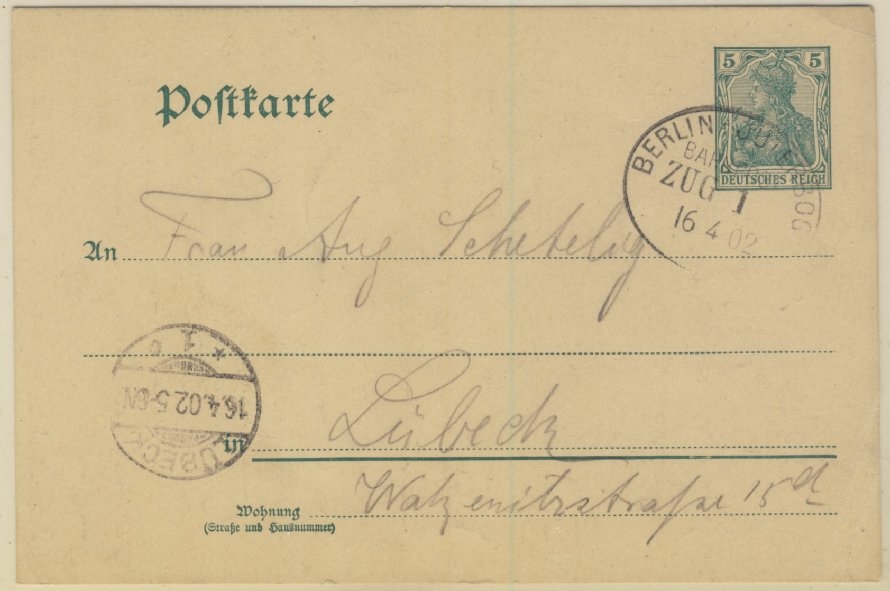 5 5
Postkarte
DEUTSCHES REICH
BERLIN
ZUG 1
16 4 02
An Frau Aug Schetelig
* 1 c
16.4.02.5-6N
LÜBECK
in Lübeck
Wohnung
(Straße und Hausnummer)
Wakenitzstraße 15 d